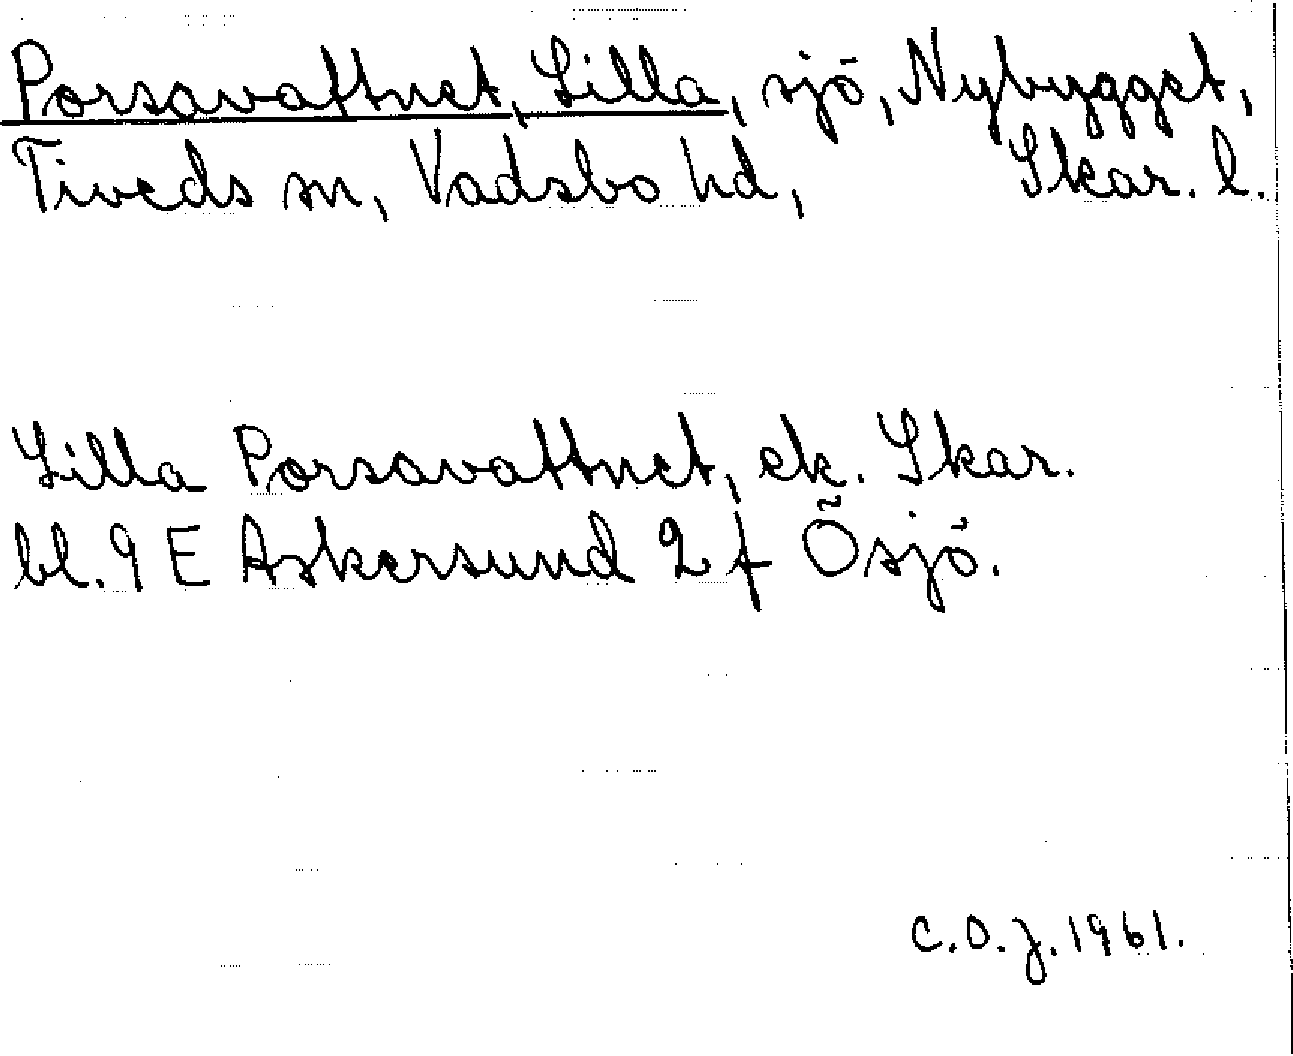 Porsavattnet, Lilla, sjö, Nybygget,
Tiveds sn, Vadsbo hd, Skar. l.
Lilla Porsavattnet, ek. Skar.
bl. 9 E Askersund 2 f Ösjö.
C.O.J. 1961.